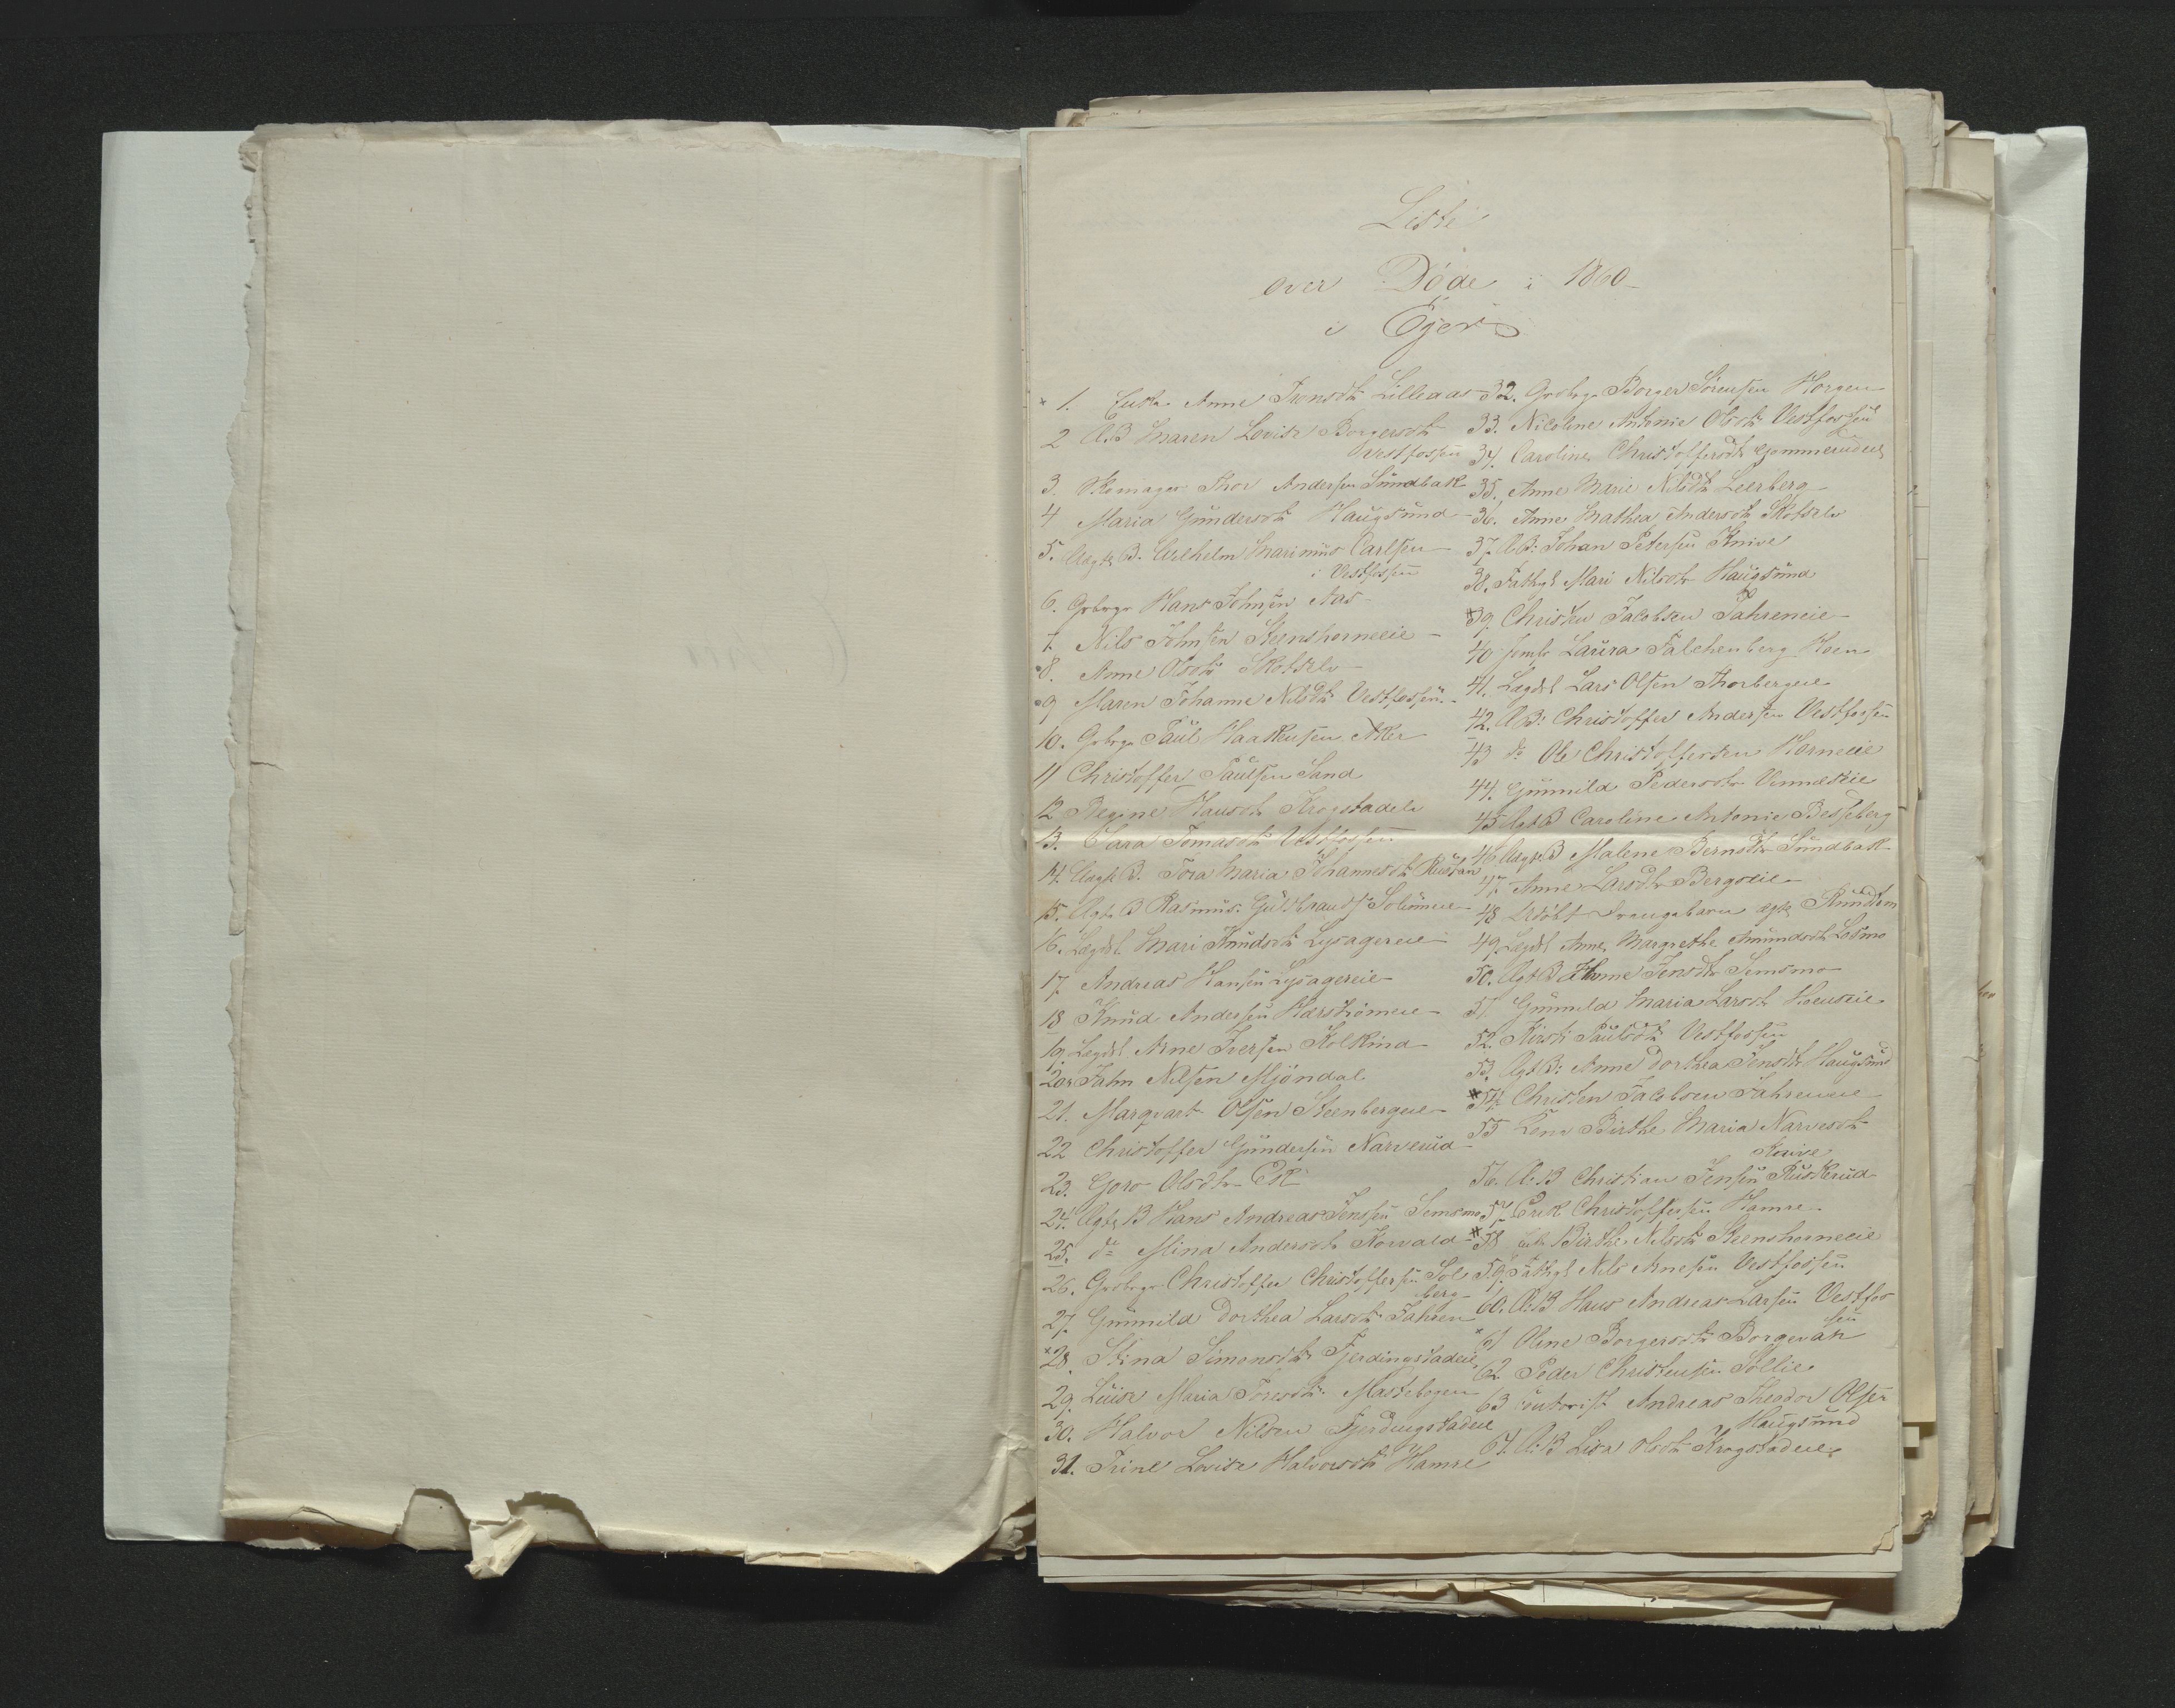 Liste
over Døde i 1860
i Eger
1. Enke Anne Tronsdtr Lilleaas
2 A.B Maren Lovise Borgersdtr
Vestfossen
3. Skomager Thor Andersen Sundbak
4 Maria Gundersdtr Haugsund
5. Ægte B. Wilhelm Marinius Carlsen
i Vestfossen
6. Grbrgr Hans Johnsen Aas
7. Nils Johnsen Steenshorneeie
8. Anne Olsdtr Skotselv
9 Maren Johanne Nilsdtr Vestfossen
10. Grbrgr Paul Haakensen Aker
11 Christoffer Paulsen Sand
12 Regine Hansdtr Krogstadelv
13. Sara Tomasdtr Vestfossen
14. Ægte B. Tora Maria Johannesdtr
15. Ægte B Rasmus Guldbrands
16. Lægdsl Mari Knudsdtr Lysagereie
17. Andreas Hansen Lysagereie
18 Knud Andersen
19. Lægdsl Arne Iversen Kolkind
20. Jahn Nilsen Mjöndal
21. Marqvart Olsen Steenbergeie
22 Christoffer Gundersen Narverud
23. Goro Olsdtr Ek
24. Ægte B Hans Andreas Jensen Semsmo
25. do Mina Andersdtr Korvald
26. Grbrgr Christoffer Christoffersen Sol
berg
27. Gunnild Dorthea Larsdtr Fahren
28 Stina Simensdtr Fjerdingstadeie
29. Luise Maria Toresdtr Mastebogen
30. Halvor Nilsen Fjerdingstadeie
31. Trine Lovise Halvorsdtr Hamre
32. Grbrgr Borger Sörensen Horgen
33. Nicoline Antonie Olsdtr Vestfossen
34. Caroline Christoffersdtr
35. Anne Marie Nilsdtr Leerberg
36. Anne Mathea Andersdtr Skotselv
37. A.B: Johan Petersen Knive
38. Fattigl Mari Nilsdtr Haugsund
39. Christen Jacobsen Fahreneie
40 Jomfr Laura Falchenberg Hoen
41. Lægdsl Lars Olsen Thorbergeie
42. A.B: Christoffer Andersen Vestfossen
43 do Ole Christoffersen Horneeie
44. Gunnild Pedersdtr
45 Ægte B Caroline Antonie Besseberg
46. Ægte B Malene Berndtsdtr Sundbak
47. Anne Larsdtr Bergseie
48 Udöbt Drengebarn ægte
49. Lægdsl Anne Margrethe Amundsdtr Losmo
50. Ægte B Anne Jensdtr Semsmo
51. Gunnild Maria Larsdtr Hoenseie
52. Kirsti Paulsdtr Vestfossen
53. Ægte B: Anne Dorthea Jensdtr Haugsund
54. Christen Jacobsen Fahreneie
55 Lena Birthe Maria Narvesdtr
Knive
56. A.B Christian Jensen Ruskerud
57 Erik Christoffersen Hamre
58 Enke Birthe Nilsdtr Steenshorneeie
59. Fattigl Nils Arnesen Vestfossen
60. A.B Hans Andreas Larsen Vestfos
sen
61 Oline Borgersdtr
62 Peder Christensen Sollie
63 Contorist Andreas Theodor Olsen
Haugsund
64. A.B Lisa Olsdtr Krogstadeie